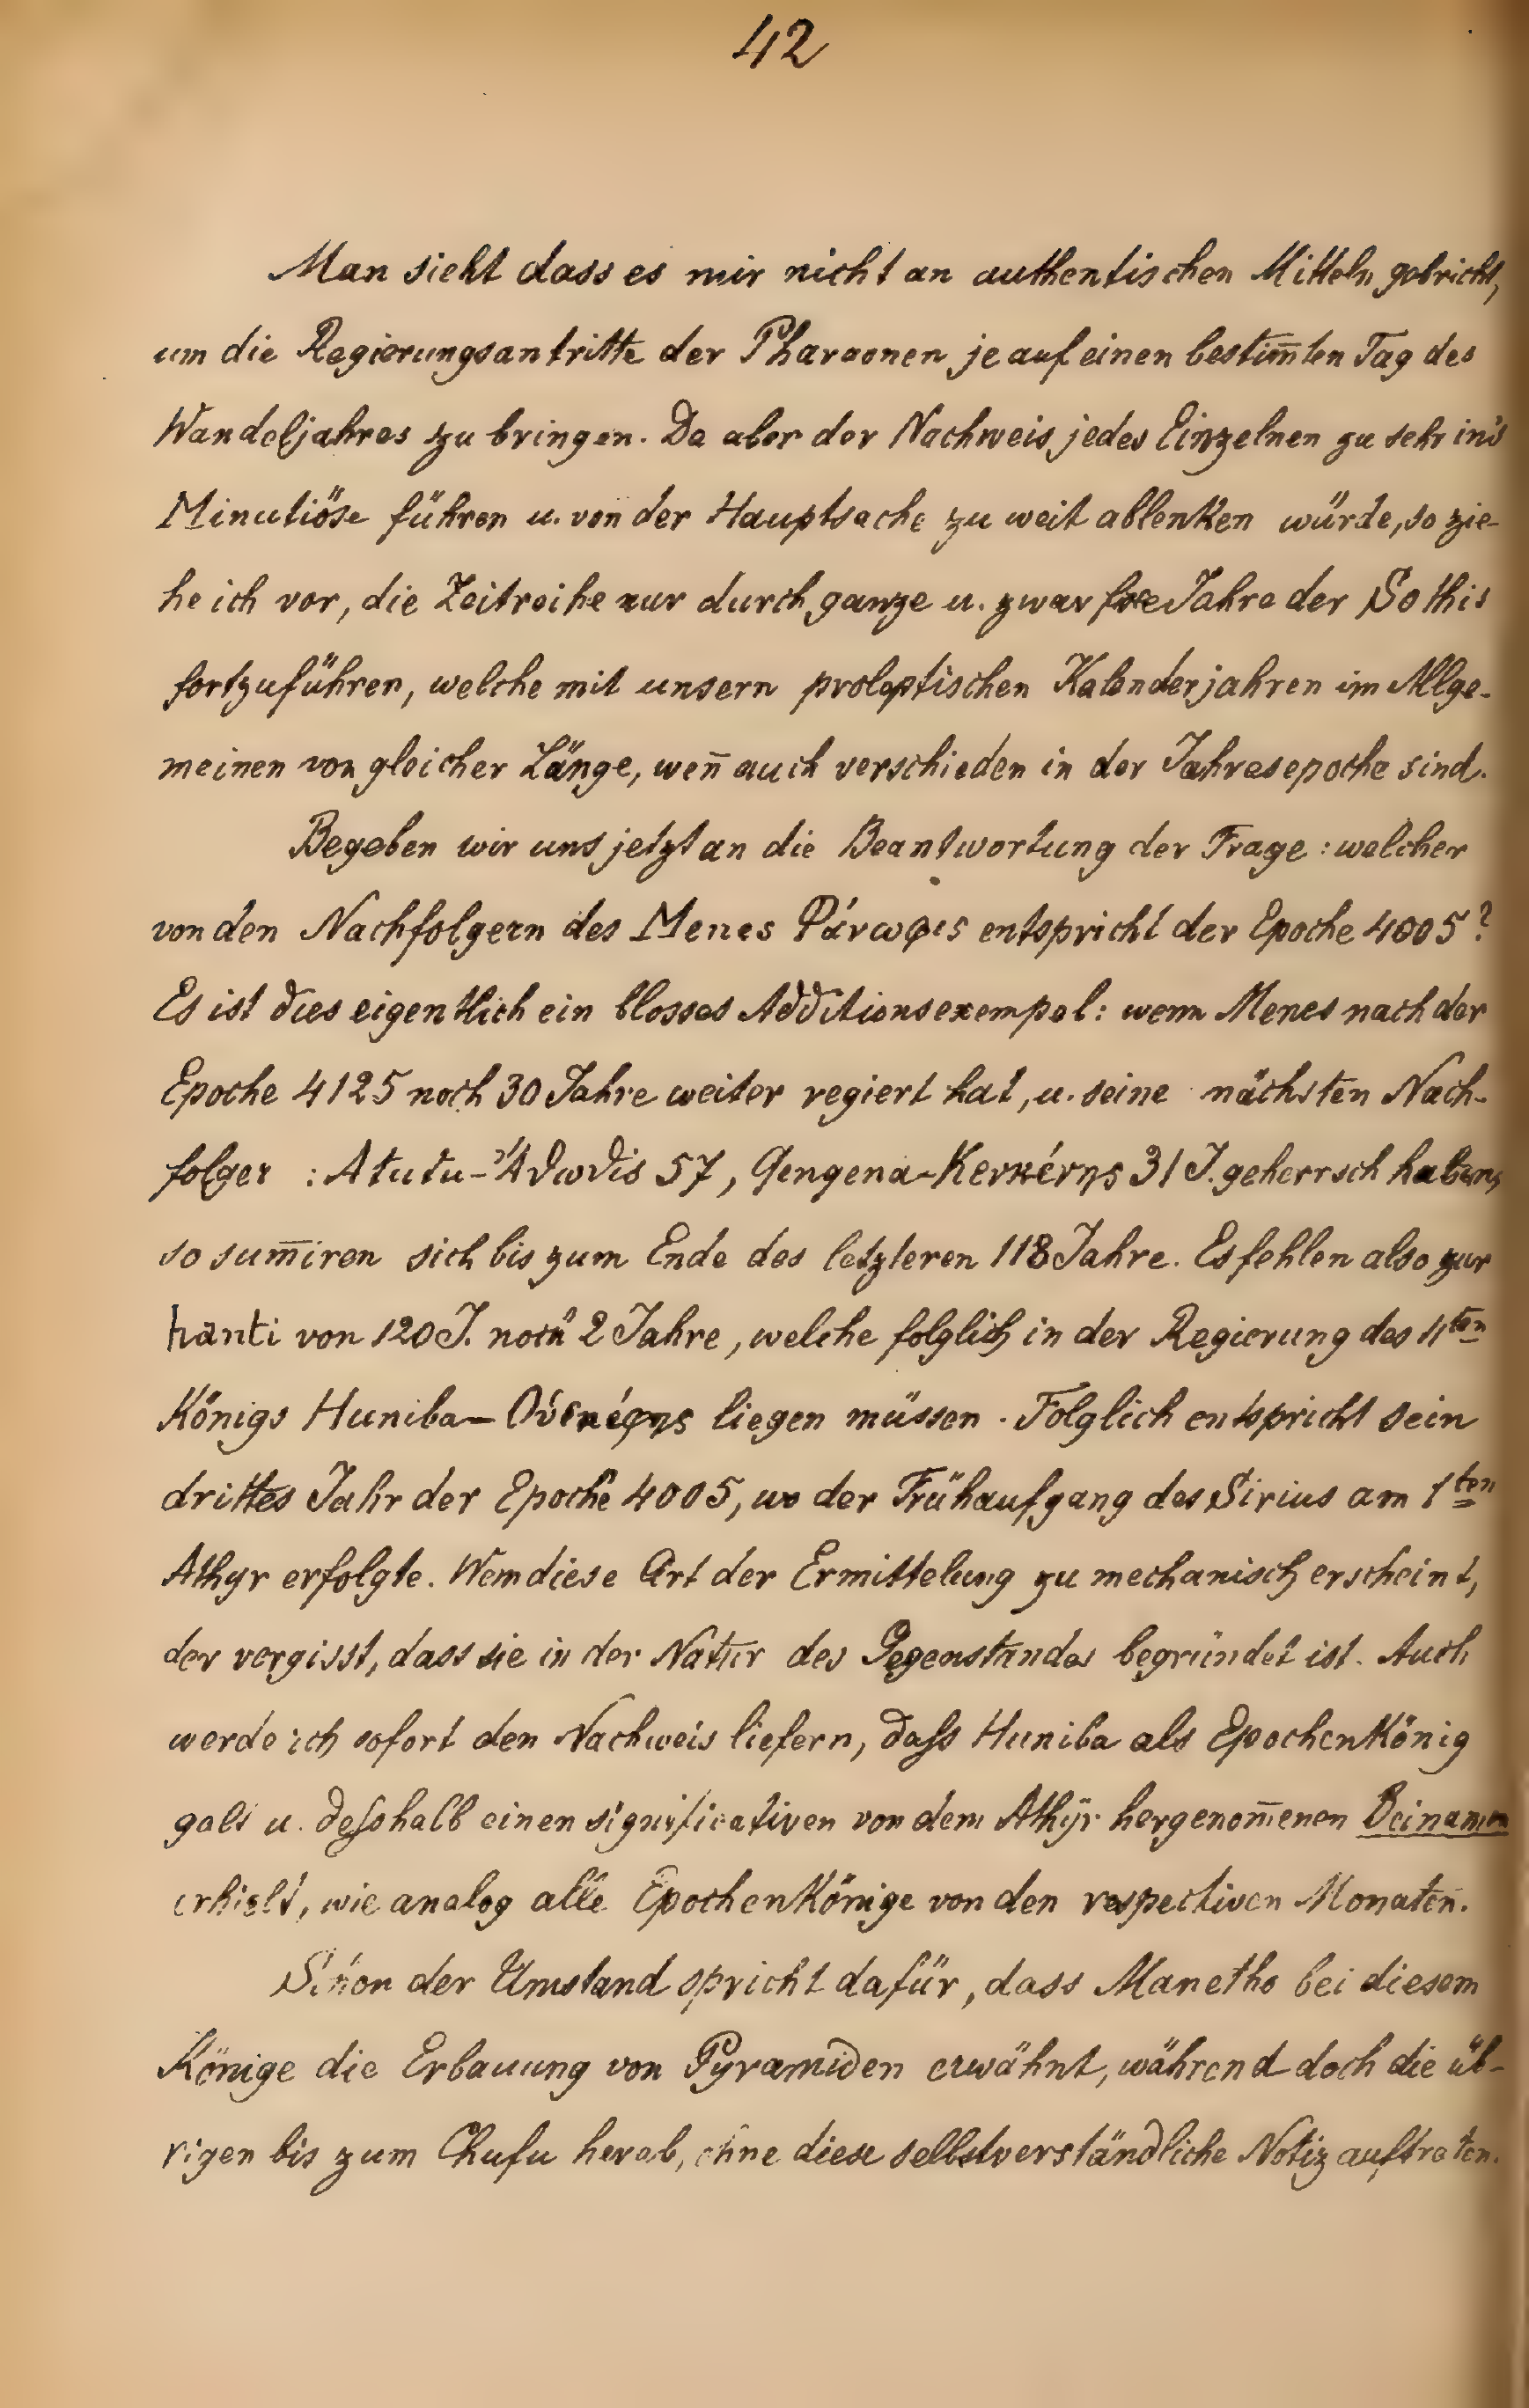 42
Man sieht dass es mir nicht an authentischen Mitteln gebricht,
um die Regierungsantritte der Pharaonen je auf einen bestim̄ten Tag des
Wandeljahres zu bringen. Da aber der Nachweis jedes Einzelnen zu sehr in's
Minutiöse führen u. von der Hauptsache zu weit ablenken würde, so zie-
he ich vor, die Zeitreihe nur durch ganze u. zwar fixe Jahre der Sothis
fortzuführen, welche mit unsern proleptischen Kalenderjahren im Allge-
meinen von gleicher Länge, wen̄ auch verschieden in der Jahresepoche sind.
Begeben wir uns jetzt an die Beantwortung der Frage: welcher
von den Nachfolgern des Menes Φάνωφις entspricht der Epoche 4005?
Es ist dies eigentlich ein blosses Additionsexempel: wenn Menes nach der
Epoche 4125 noch 30 Jahre weiter regiert hat, u. seine nächsten Nach-
folger : Atutu-Ἄθωθις 57, Qenqena-Κενκένης 31 J. geherrsch haben,
so sum̄iren sich bis zum Ende des letzteren 118 Jahre. Es fehlen also zur
hanti von 120 J. noch 2 Jahre, welche folglich in der Regierung des 4ten
Königs Huniba- Οὐενέφης liegen müssen. Folglich entspricht sein
drittes Jahr der Epoche 4005, wo der Frühaufgang des Sirius am 1ten
Athyr erfolgte. Wem diese Art der Ermittelung zu mechanisch erscheint,
der vergisst, dass sie in der Natur des Gegenstandes begründet ist. Auch
werde ich sofort den Nachweis liefern, daſs Huniba als Epochenkönig
galt u. deſshalb einen significativen von dem Athyr hergenom̄enen Beinamen
erhielt, wie analog alle Epochenkönige von den respectiven Monaten.
Schon der Umstand spricht dafür, dass Manetho bei diesem
Könige die Erbauung von Pyramiden erwähnt, während doch die üb-
rigen bis zum Chufu herab, ohne diese selbstverständliche Notiz auftreten.